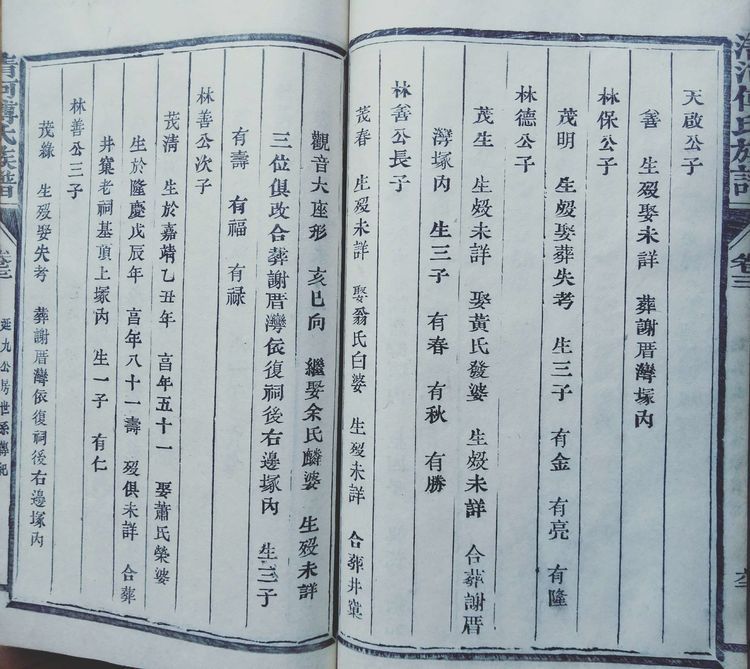 天啟公子
善 生歿娶未詳 葬謝厝灣塚內
林保公子
茂明 生歿娶葬失考 生三子 有金 有亮 有隆
林德公子
茂生 生歿未詳 娶黃氏發婆 生歿未詳 合葬謝厝
灣塚內 生三子 有春 有秋 有勝
林善公長子
茂春 生歿未詳 娶翁氏白婆 生歿未詳 合葬井窠
觀音大座形 亥巳向 繼娶余氏麟婆 生歿未詳
三位俱改合葬謝厝灣依復祠後右邊塚內 生三子
有壽 有福 有禄
林善公次子
茂清 生於嘉靖乙丑年 亯年五十一 娶蕭氏榮婆
生於隆慶戊辰年 亯年八十一壽 歿俱未詳 合葬
井窠老祠基頂上塚內 生一子 有仁
林善公三子
茂綠 生歿娶失考 葬謝厝灣依復祠後右邊塚內
清河傅氏族譜 卷三 延九公房世系